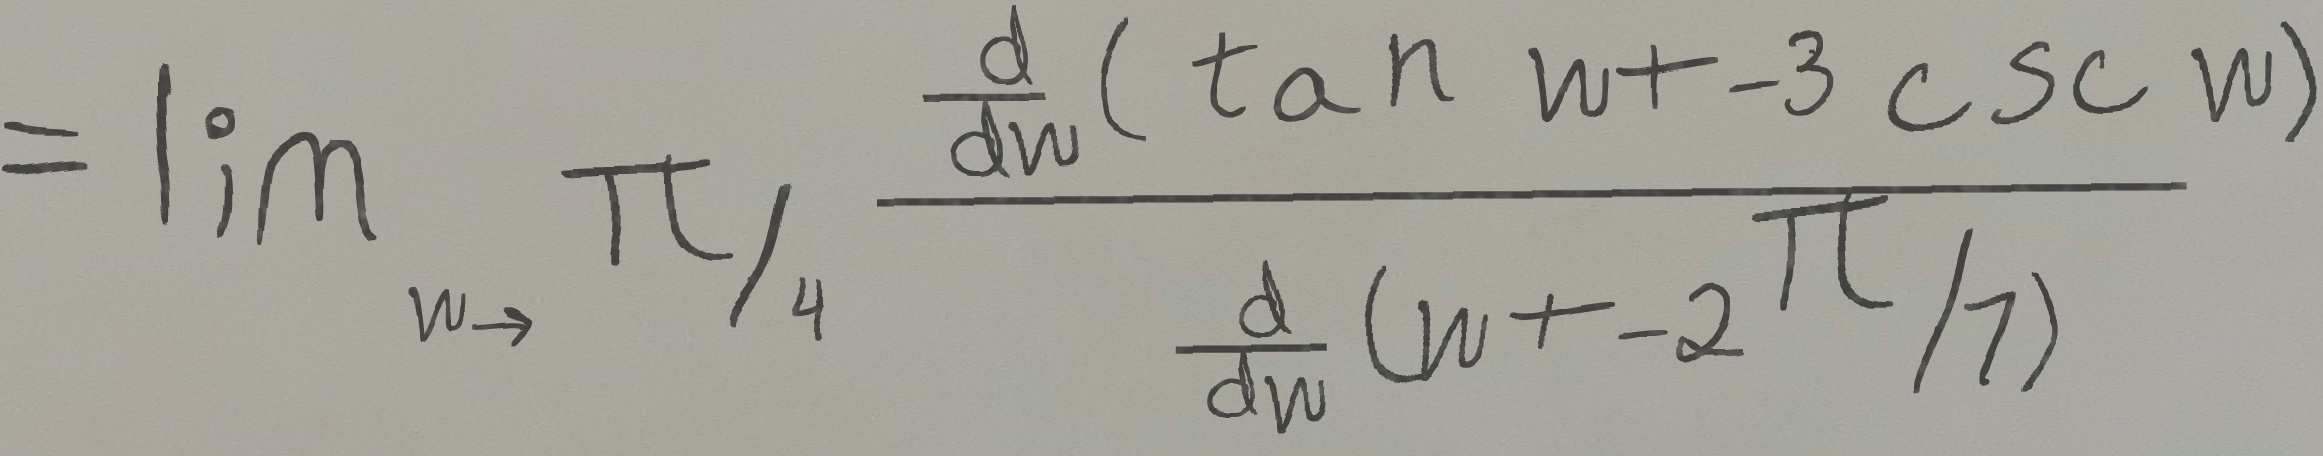 = lim_{w→π/4} \frac{\frac{d}{dw}(tan w + -3 csc w)}{\frac{d}{dw}(w + -2π/7)}